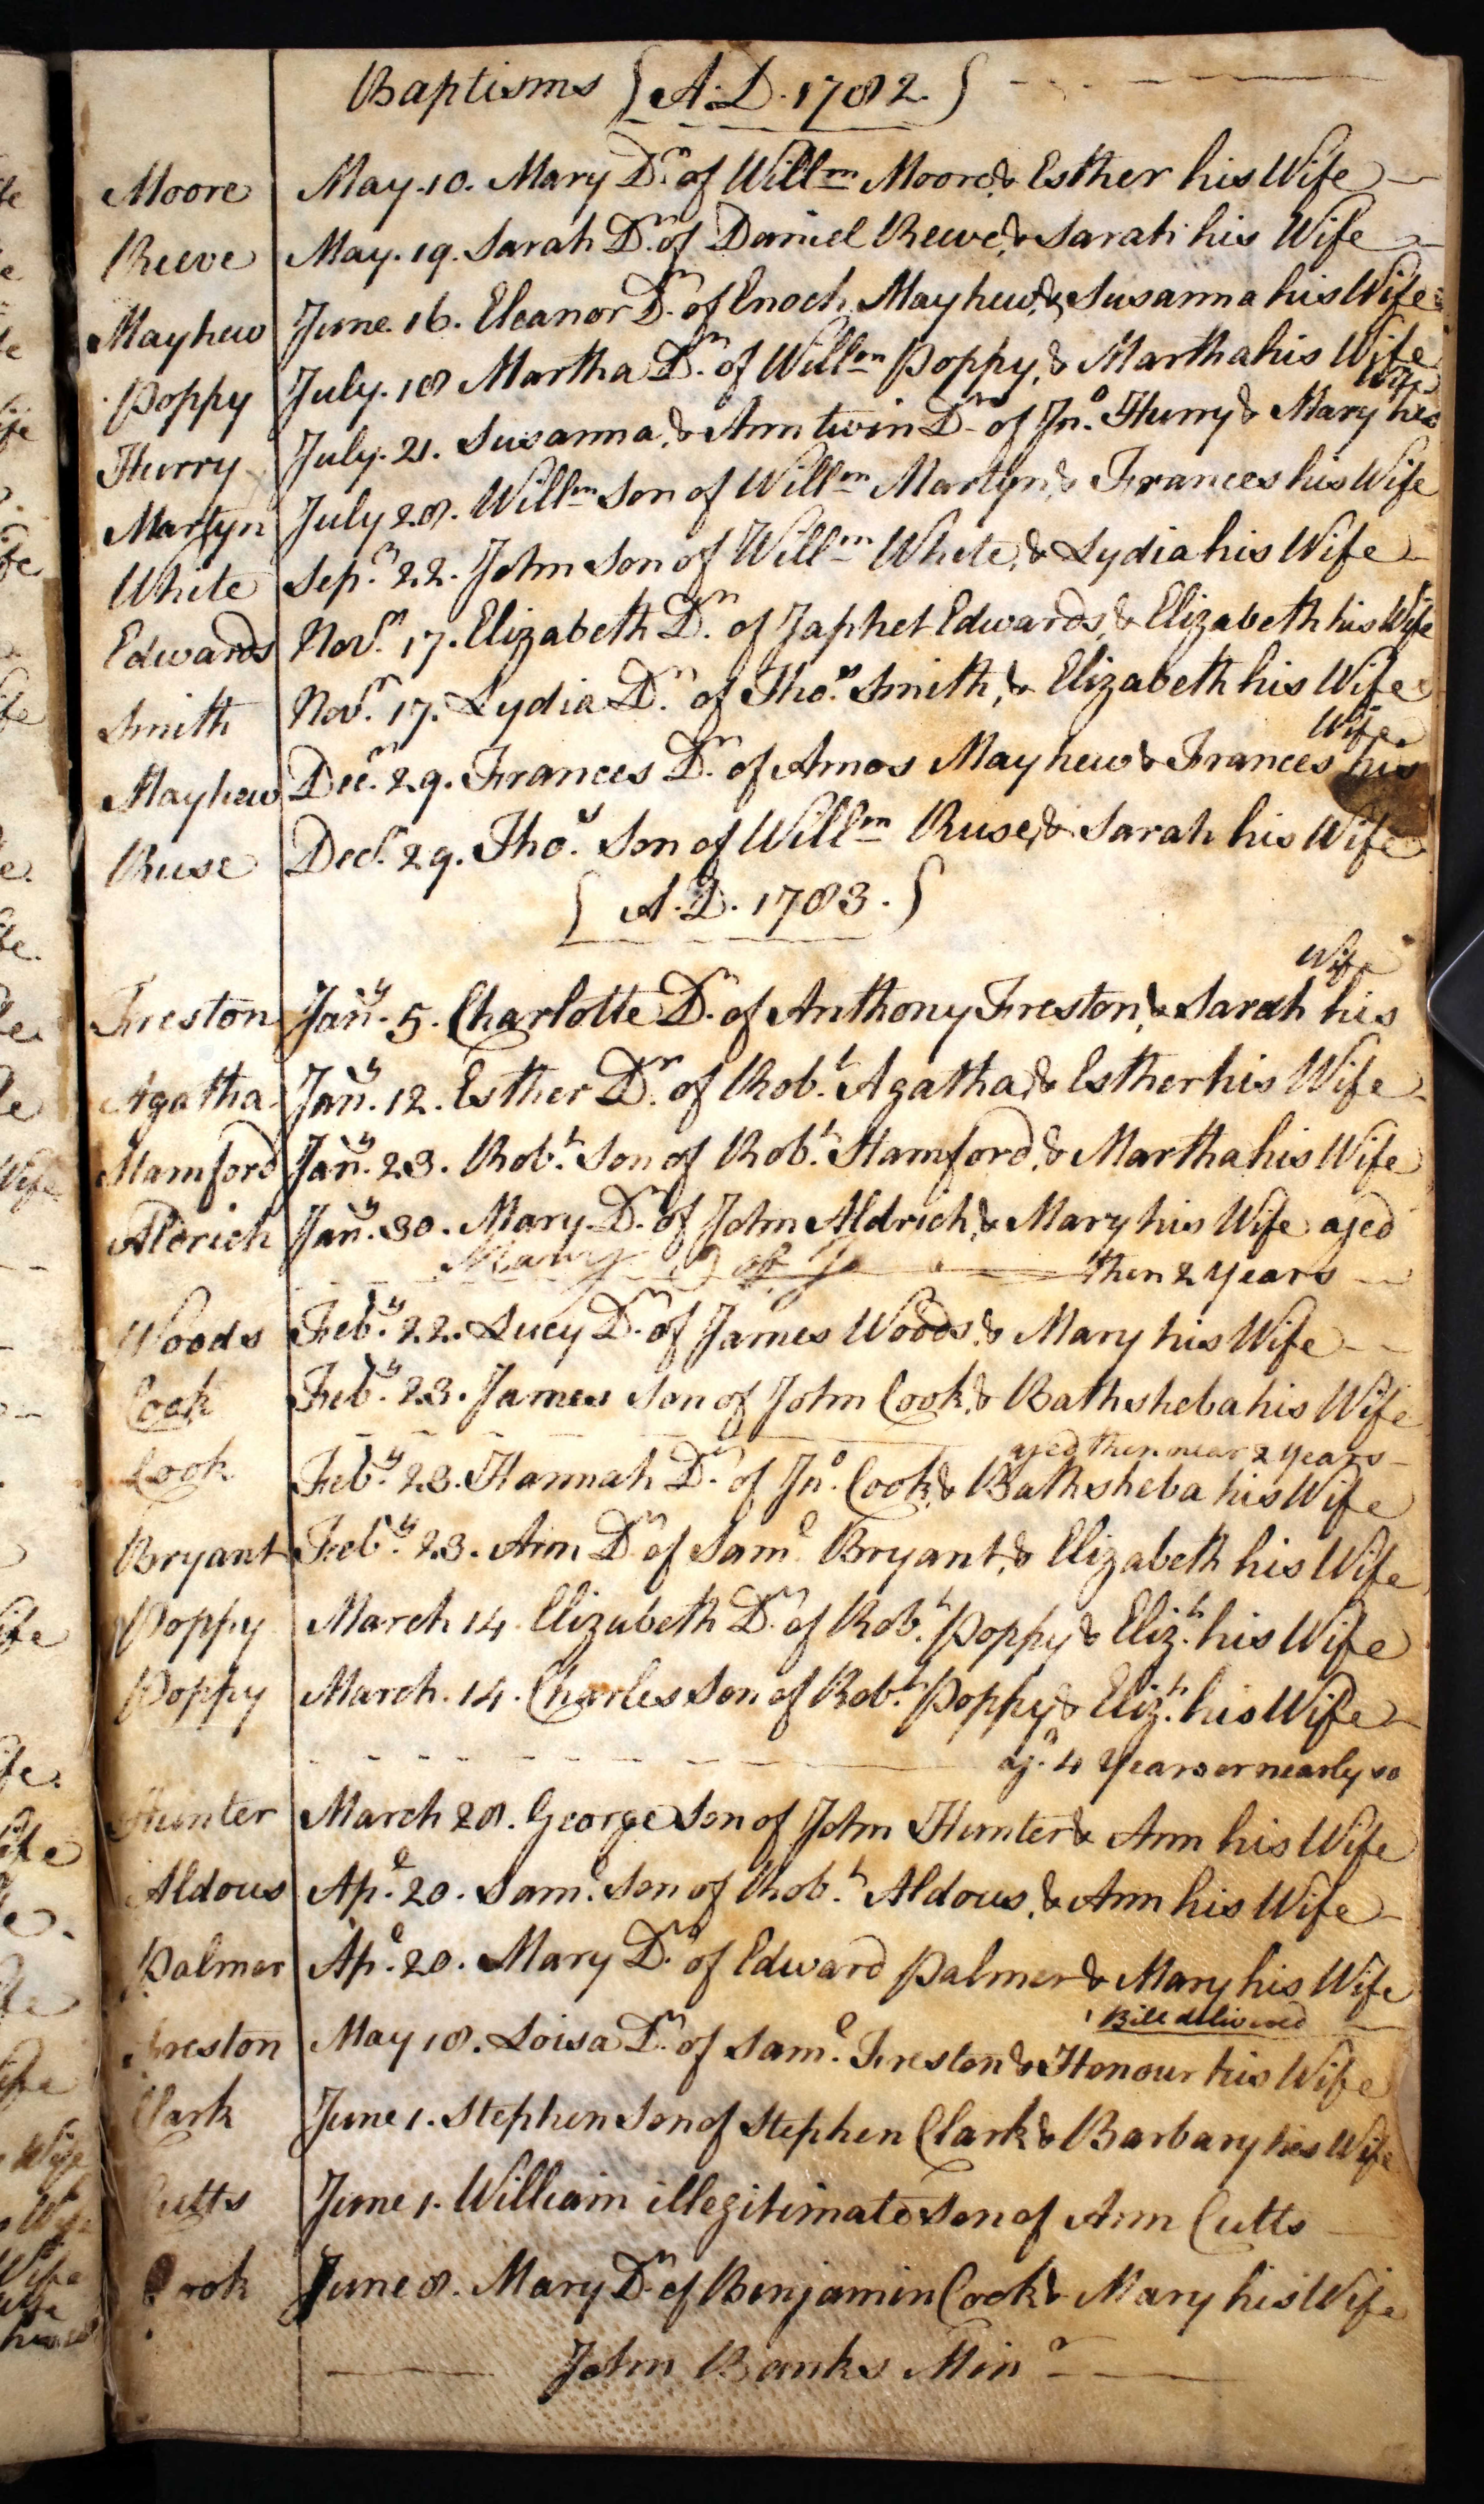 Baptisms { A. D. 1782. }
Moore May. 10. Mary Dr. of Willm Moore, & Esther his Wife
Reeve May. 19. Sarah Dr. of Daniel Reeve, & Sarah his Wife
Mayhew June. 16. Eleanor Dr. of Enoch Mayhew, & Susanna his Wife
Poppy July. 18 Martha Dr. of Willm Poppy, & Martha his Wife
Hurry July. 21. Susanna, & Ann twin Drs of Jno. Hurry & Mary his Wife
Martyn July 28. Willm Son of Willm Martyn, & Frances his Wife
White Sepr. 22. John Son of Willm White, & Lydia his Wife
Edwards Novr. 17. Elizabeth Dr. of Japhet Edwards, & Elizabeth his Wife
Smith Novr. 17. Lydia Dr. of Thos. Smith, & Elizabeth his Wife
Mayhew Decr. 29. Frances Dr. of Amos Mayhew & Frances his Wife
Ruse Decr. 29. Thos. Son of Willm Ruse, & Sarah his Wife
{ A. D. 1783. }
Freston Jany. 5. Charlotte Dr. of Anthony Freston, & Sarah his Wife
Agatha Jany. 12. Esther Dr. of Robt. Agatha, & Esther his Wife
Hamford Jany. 23. Robt. Son of Robt. Hamford, & Martha his Wife
Aldrich Jany. 30. Mary Dr. of John Aldrich, & Mary his Wife aged
Mary D of Jo then 2 Years
Woods Feby. 22. Lucy Dr. of James Woods, & Mary his Wife
Cook Feby. 23. James Son of John Cook, & Bathsheba his Wife
aged then near 2 years
Cook Feby. 23. Hannah Dr. of Jno. Cook, & Bathsheba his Wife
Bryant Feby. 23. Ann Dr. of Saml. Bryant, & Elizabeth his Wife
Poppy March 14 Elizabeth Dr. of Robt. Poppy & Elizh. his Wife
Poppy March. 14. Charles Son of Robt. Poppy & Elizh. his Wife
agd. 4 Years or nearly so
Hunter March 28. George Son of John Hunter & Ann his Wife
Aldous Apl. 20. Saml. Son of Robt. Aldous, & Ann his Wife
Palmer Apl. 20. Mary Dr. of Edward Palmer & Mary his Wife
Bill delivered
Freston May 18. Loisa Dr. of Saml. Freston & Honour his Wife
Clark June 1. Stephen Son of Stephen Clark & Barbary his Wife
Cutts June 1. William illegitimate Son of Ann Cutts
Cook June 8. Mary Dr. of Benjamin Cook & Mary his Wife
John Banks Minr